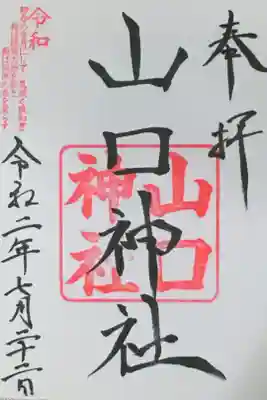 奉拝
山口神社
山口
神社
令和
令和二年七月二十二日